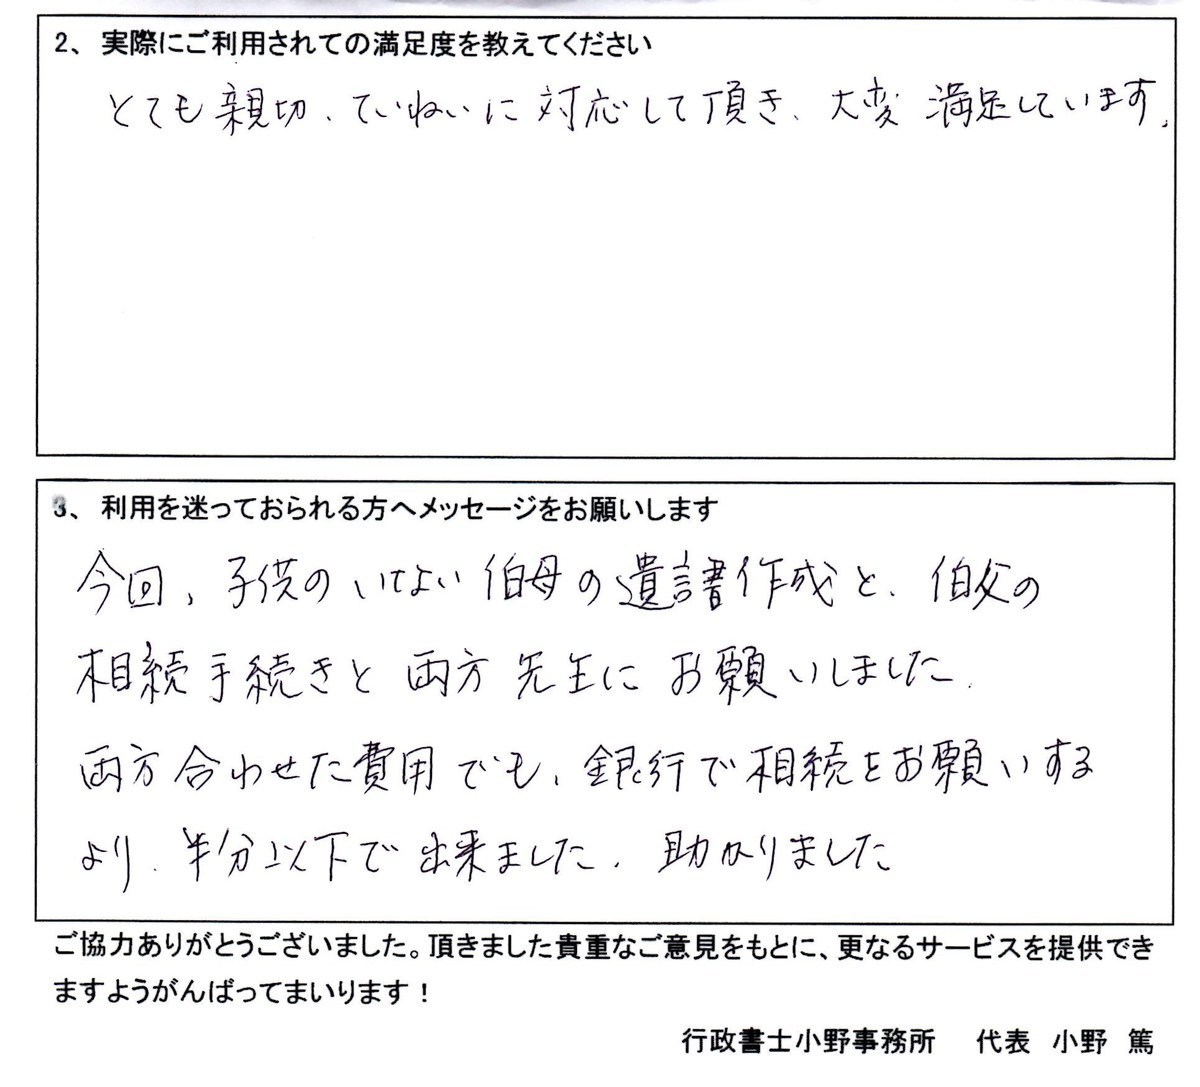 2、 実際にご利用されての満足度を教えてください
とても親切、ていねいに対応して頂き、大変満足しています。
3、 利用を迷っておられる方へメッセージをお願いします
今回、子供のいない伯母の遺言書作成と、伯父の
相続手続きと両方先生にお願いしました。
両方合わせた費用でも、銀行で相続をお願いする
より、半分以下で出来ました。助かりました
ご協力ありがとうございました。頂きました貴重なご意見をもとに、更なるサービスを提供でき
ますようがんばってまいります！
行政書士小野事務所 代表 小野 篤